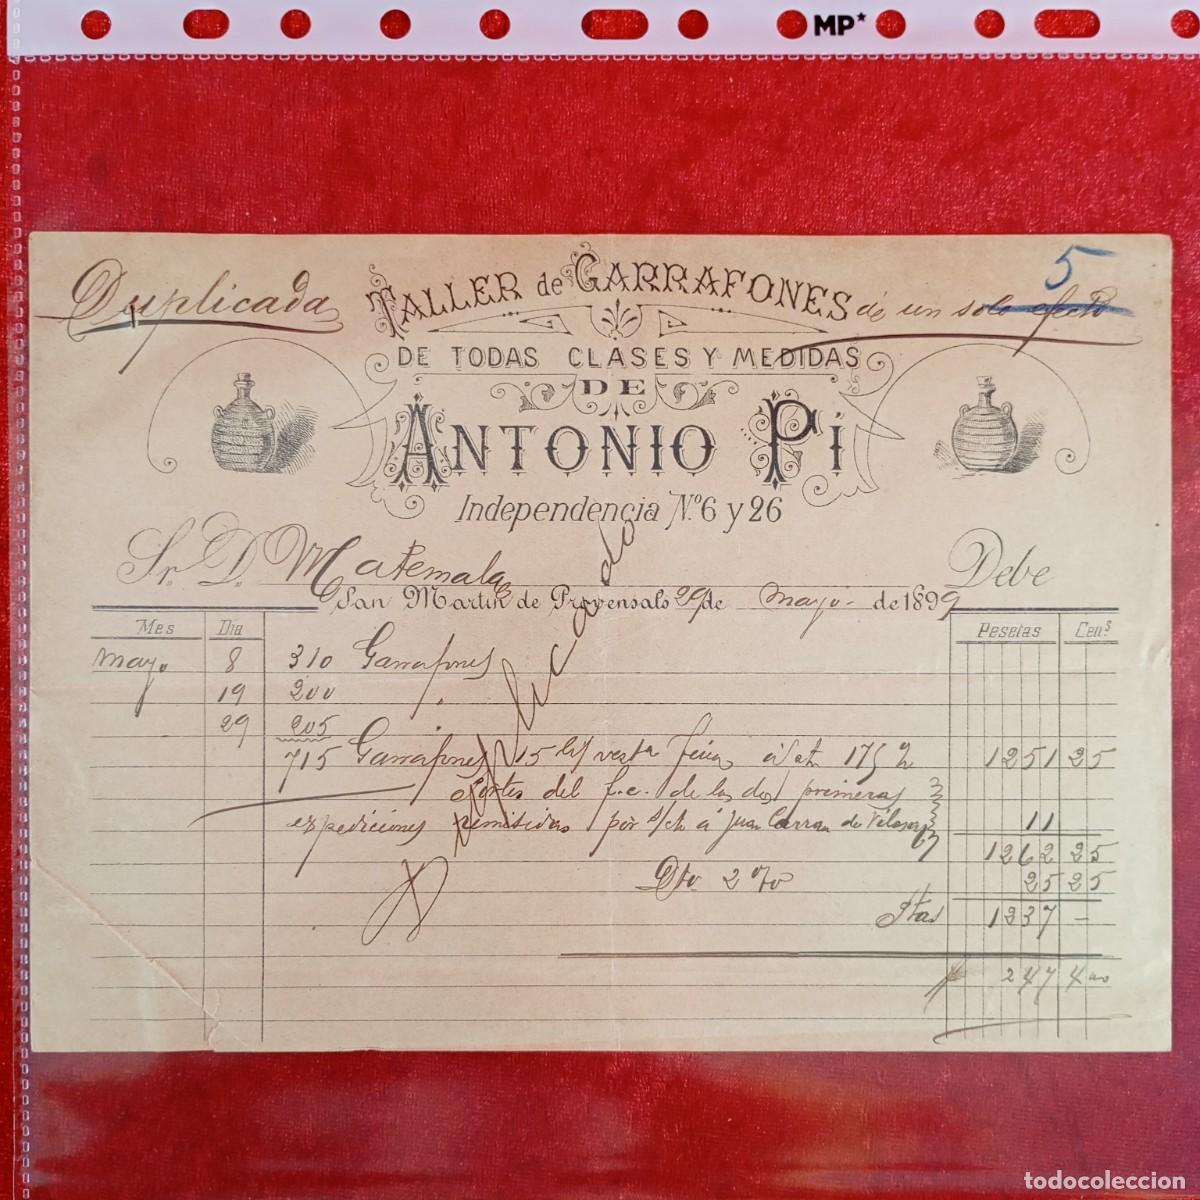 MP*
5
Duplicada
TALLER de GARRAFONES
de un solo efecto
DE TODAS CLASES Y MEDIDAS
DE
ANTONIO PÍ
Independencia Nº 6 y 26
Sr. D. Matemala
Debe
San Martin de Provensals 29 de mayo de 1899
Mes Dia Pesetas Cens
mayo 8 310 Garrafones
19 200 "
29 205 "
715 Garrafones 15 vesta 175 1251 25
Portes del f.c. de las dos primeras
expediciones remitidas por s/ch á Juan de 11
1262 25
Dto 2 % 25 25
Ptas 1237 -
247 4
Duplicado
todocoleccion